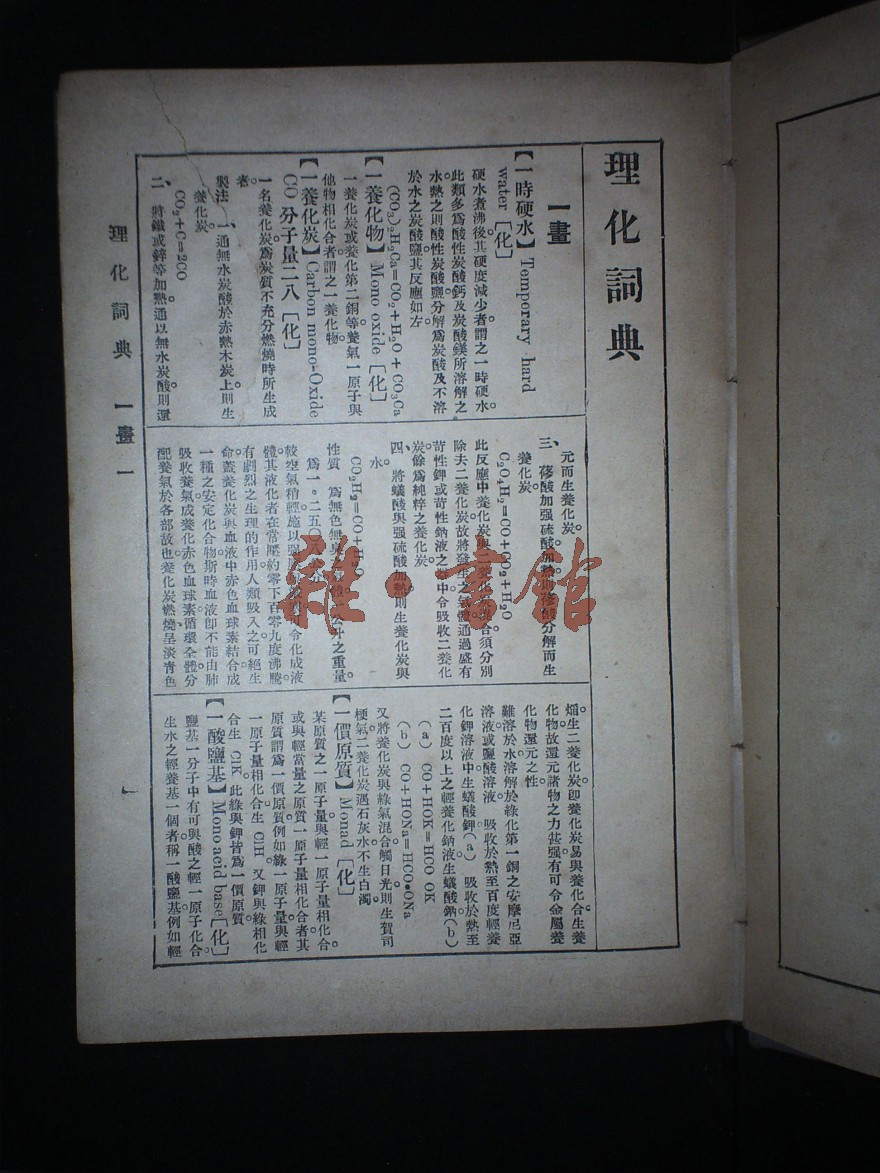 理化詞典
一畫
【一時硬水】Temporary hard
water [化]
硬水煮沸後其硬度減少者。謂之一時硬水。
此類多爲酸性炭酸鈣及炭酸鎂所溶解之
水。熱之則酸性炭酸鹽分解爲炭酸及不溶
於水之炭酸鹽其反應如左
(CO₃)₂H₂Ca=CO₂+H₂O+CO₃Ca
【一養化物】Mono oxide [化]
一養化炭或養化第二銅等養氣一原子與
他物相化合者。謂之一養化物。
【一養化炭】Carbon mono-Oxide
CO 分子量二八 [化]
一名養化炭。爲炭質不充分燃燒時所生成
者。
製法 一、通無水炭酸於赤熱木炭上。則生
養化炭。
CO₂+C=2CO
二、將鐵或鋅等加熱。通以無水炭酸。則還
元而生養化炭。
三、蓚酸加强硫酸加熱則蓚酸分解而生
養化炭。
C₂O₄H₂=CO+CO₂+H₂O
此反應中養化炭與二養化炭混合。須分別
除去二養化炭。故將發生之氣體通過盛有
苛性鉀或苛性鈉液之 中。令吸收二養化
炭。餘爲純粹之養化炭。
四、將蟻酸與强硫酸加熱。則生養化炭與
水。
CO₂H₂=CO+H₂O
性質 爲無色無臭之氣體。 公升之重量
爲一。二五〇八公分。
較空氣稍輕。施以强 令化成液
體。其液化者在常壓約零下百零九度沸騰。
有劇烈之生理的作用。人類吸入之。可絕生
命。蓋養化炭與血液中赤色血球素結合成
一種之安定化合物。斯時血液卽不能由肺
吸收養氣成養化赤色血球素。循環全體。分
配養氣於各部故也。養化炭燃燒呈淡靑色
焰。生二養化炭。卽養化炭易與養化合。生養
化物。故還元諸物之力甚强。有可令金屬養
化物還元之性。
難溶於水。溶解於綠化第一銅之安摩尼亞
溶液或鹽酸溶液。吸收於熱至百度輕養
化鉀溶液中生蟻酸鉀(a)吸收於熱至
二百度以上之輕養化鈉液。生蟻酸鈉(b)
(a) CO+HOK=HCO OK
(b) CO+HONa=HCO•ONa
又將養化炭與綠氣混合。觸日光。則生賀司
梗氣。二養化炭遇石灰水不生白濁。
【一價原質】Monad [化]
某原質之一原子量與輕一原子量相化合。
或與輕當量之原質一原子量相化合者。其
原質謂爲一價原質。例如綠一原子量與輕
一原子量相化合生 ClH。又鉀與綠相化
合生 ClK。此綠與鉀皆爲一價原質
【一酸鹽基】Mono acid base [化]
鹽基一分子中有可與酸之輕一原子化合
生水之輕養基一個者。稱一酸鹽基。例如輕
理化詞典 一畫 一
一
雜·書館